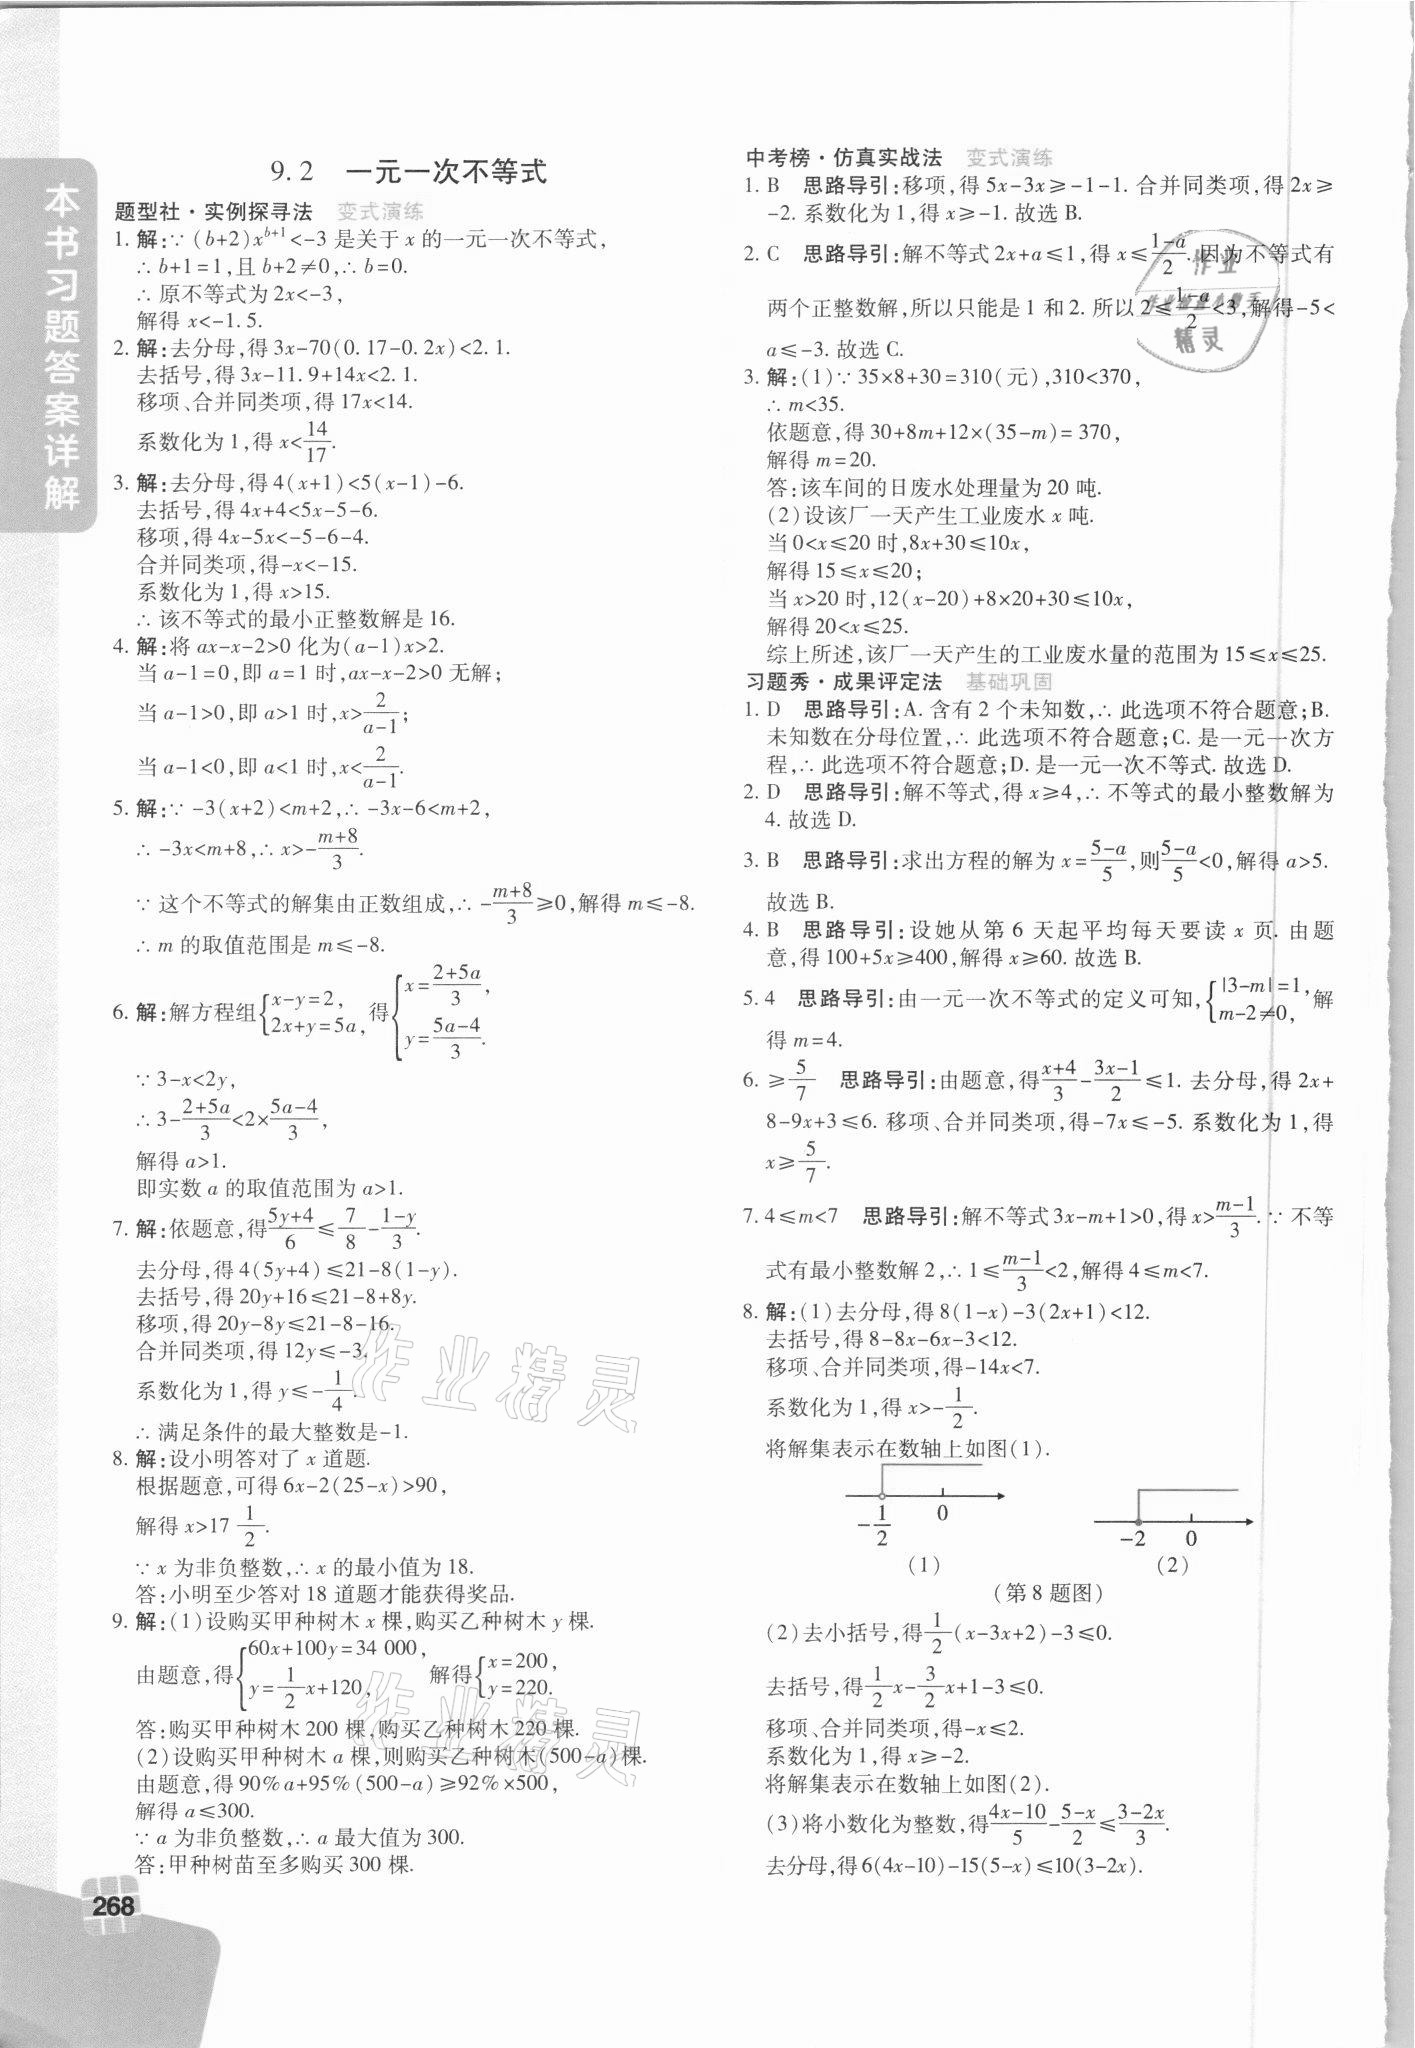 本书习题答案详解
9.2 一元一次不等式
题型社·实例探寻法 变式演练
1. 解:∵(b+2)x^{b+1}<-3 是关于 x 的一元一次不等式,
∴ b+1=1,且 b+2≠0,∴ b=0.
∴ 原不等式为 2x<-3,
解得 x<-1.5.
2. 解:去分母,得 3x-70(0.17-0.2x)<2.1.
去括号,得 3x-11.9+14x<2.1.
移项、合并同类项,得 17x<14.
系数化为 1,得 x<14/17.
3. 解:去分母,得 4(x+1)<5(x-1)-6.
去括号,得 4x+4<5x-5-6.
移项,得 4x-5x<-5-6-4.
合并同类项,得-x<-15.
系数化为 1,得 x>15.
∴ 该不等式的最小正整数解是 16.
4. 解:将 ax-x-2>0 化为(a-1)x>2.
当 a-1=0,即 a=1 时,ax-x-2>0 无解;
当 a-1>0,即 a>1 时,x>2/(a-1);
当 a-1<0,即 a<1 时,x<2/(a-1).
5. 解:∵ -3(x+2)<m+2,∴ -3x-6<m+2,
∴ -3x<m+8,∴ x>-(m+8)/3.
∵ 这个不等式的解集由正数组成,∴ -(m+8)/3≥0,解得 m≤-8.
∴ m 的取值范围是 m≤-8.
6. 解:解方程组{x-y=2, 2x+y=5a,得{x=(2+5a)/3, y=(5a-4)/3.
∵ 3-x<2y,
∴ 3-(2+5a)/3<2×(5a-4)/3,
解得 a>1.
即实数 a 的取值范围为 a>1.
7. 解:依题意,得(5y+4)/6≤7/8-(1-y)/3.
去分母,得 4(5y+4)≤21-8(1-y).
去括号,得 20y+16≤21-8+8y.
移项,得 20y-8y≤21-8-16.
合并同类项,得 12y≤-3.
系数化为 1,得 y≤-1/4.
∴ 满足条件的最大整数是-1.
8. 解:设小明答对了 x 道题.
根据题意,可得 6x-2(25-x)>90,
解得 x>17 1/2.
∵ x 为非负整数,∴ x 的最小值为 18.
答:小明至少答对 18 道题才能获得奖品.
9. 解:(1)设购买甲种树木 x 棵,购买乙种树木 y 棵.
由题意,得{60x+100y=34 000, y=1/2x+120, 解得{x=200, y=220.
答:购买甲种树木 200 棵,购买乙种树木 220 棵.
(2)设购买甲种树木 a 棵,则购买乙种树木(500-a)棵.
由题意,得 90%a+95%(500-a)≥92%×500,
解得 a≤300.
∵ a 为非负整数,∴ a 最大值为 300.
答:甲种树苗至多购买 300 棵.
268
中考榜·仿真实战法 变式演练
1. B 思路导引:移项,得 5x-3x≥-1-1. 合并同类项,得 2x≥
-2. 系数化为 1,得 x≥-1. 故选 B.
2. C 思路导引:解不等式 2x+a≤1,得 x≤(1-a)/2. 因为不等式有
两个正整数解,所以只能是 1 和 2. 所以 2≤(1-a)/2<3,解得-5<
a≤-3. 故选 C.
3. 解:(1)∵ 35×8+30=310(元),310<370,
∴ m<35.
依题意,得 30+8m+12×(35-m)=370,
解得 m=20.
答:该车间的日废水处理量为 20 吨.
(2)设该厂一天产生工业废水 x 吨.
当 0<x≤20 时,8x+30≤10x,
解得 15≤x≤20;
当 x>20 时,12(x-20)+8×20+30≤10x,
解得 20<x≤25.
综上所述,该厂一天产生的工业废水量的范围为 15≤x≤25.
习题秀·成果评定法 基础巩固
1. D 思路导引:A. 含有 2 个未知数,∴ 此选项不符合题意;B.
未知数在分母位置,∴ 此选项不符合题意;C. 是一元一次方
程,∴ 此选项不符合题意;D. 是一元一次不等式. 故选 D.
2. D 思路导引:解不等式,得 x≥4,∴ 不等式的最小整数解为
4. 故选 D.
3. B 思路导引:求出方程的解为 x=(5-a)/5,则(5-a)/5<0,解得 a>5.
故选 B.
4. B 思路导引:设她从第 6 天起平均每天要读 x 页. 由题
意,得 100+5x≥400,解得 x≥60. 故选 B.
5. 4 思路导引:由一元一次不等式的定义可知,{|3-m|=1, m-2≠0, 解
得 m=4.
6. ≥5/7 思路导引:由题意,得(x+4)/3-(3x-1)/2≤1. 去分母,得 2x+
8-9x+3≤6. 移项、合并同类项,得-7x≤-5. 系数化为 1,得
x≥5/7.
7. 4≤m<7 思路导引:解不等式 3x-m+1>0,得 x>(m-1)/3. ∵ 不等
式有最小整数解 2,∴ 1≤(m-1)/3<2,解得 4≤m<7.
8. 解:(1)去分母,得 8(1-x)-3(2x+1)<12.
去括号,得 8-8x-6x-3<12.
移项、合并同类项,得-14x<7.
系数化为 1,得 x>-1/2.
将解集表示在数轴上如图(1).
-1/2 0 -2 0
(1) (2)
(第 8 题图)
(2)去小括号,得1/2(x-3x+2)-3≤0.
去括号,得1/2x-3/2x+1-3≤0.
移项、合并同类项,得-x≤2.
系数化为 1,得 x≥-2.
将解集表示在数轴上如图(2).
(3)将小数化为整数,得(4x-10)/5-(5-x)/2≤(3-2x)/3.
去分母,得 6(4x-10)-15(5-x)≤10(3-2x).
作业精灵
作业精灵
作业
精灵